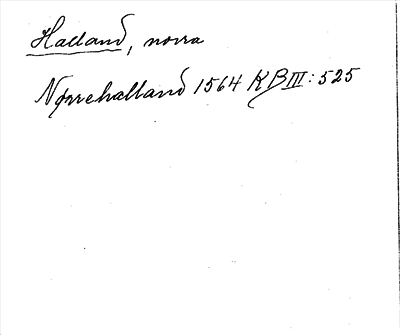 Halland, norra
Nørrehalland 1564 KB III: 525